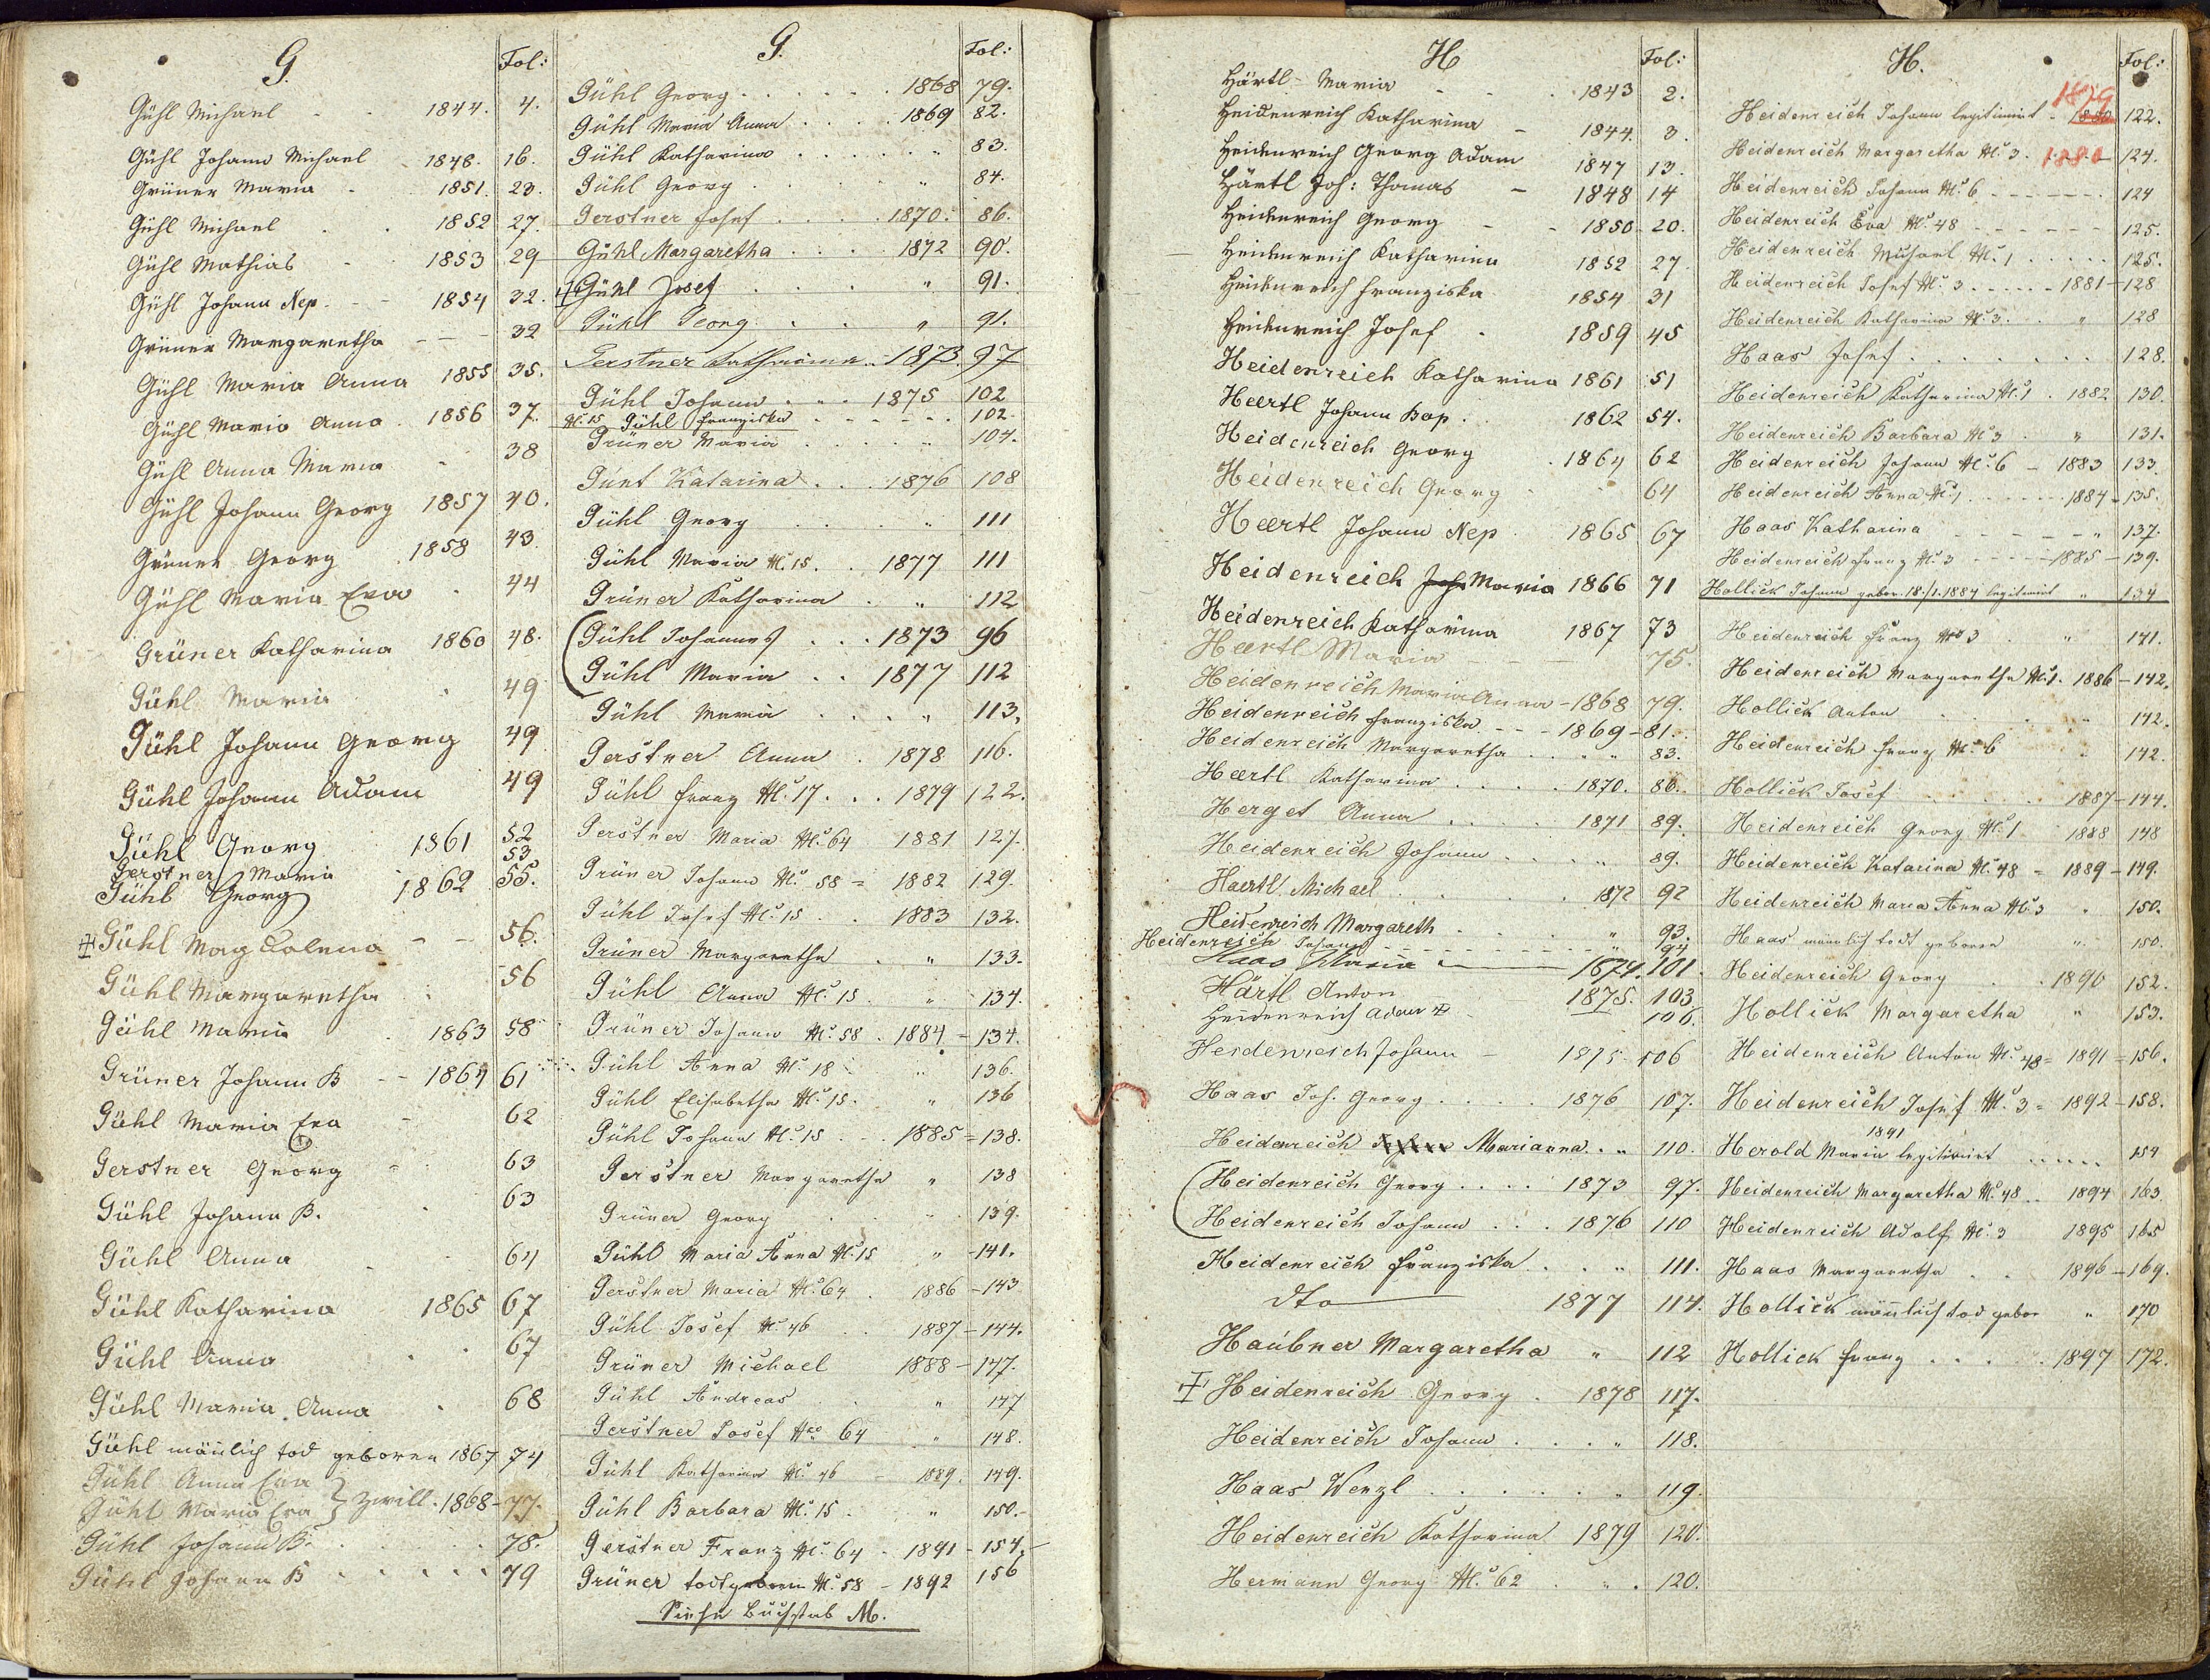 G. Fol:
Gühl Michael - - 1844. 4.
Gühl Johann Michael - 1848. 16.
Grüner Maria - 1851. 23.
Gühl Michael . . 1852 27.
Gühl Mathias - 1853 29
Gühl Johann Nep. - - 1854 32.
Grüner Margaretha - - - 32
Gühl Maria Anna 1855 35.
Gühl Maria Anna . 1856 37.
Gühl Anna Maria - 38
Gühl Johann Georg 1857 40.
Grüner Georg . 1858 43
Gühl Maria Eva . 44
Grüner Katharina 1860 48.
Gühl Maria " 49
Gühl Johann Georg 49
Gühl Johann Adam 49
Gühl Georg 1861 52
Gerstner Maria 53
Gühl Georg 1862 55.
Gühl Magdalena - - 56.
Gühl Margaretha . 56
Gühl Maria . 1863 58
Grüner Johann B - - 1864 61
Gühl Maria Eva - 62
Gerstner Georg = 63
Gühl Johann B. . 63
Gühl Anna . 64
Gühl Katharina 1865 67
Gühl Anna . . 67
Gühl Maria Anna . 68
Gühl mänlich tod geboren 1867 74
Gühl Anna Eva
Gühl Maria Eva } Zwill. 1868 - 77.
Gühl Johann B. . . . . 78.
Gühl Johann B . . . . . 79
G. Fol:
Gühl Georg . . . . . . 1868 79.
Gühl Maria Anna . . . . 1869 82.
Gühl Katharina . . . . . " 83.
Gühl Georg . . " 84.
Gerstner Josef . . . . 1870. 86.
Gühl Margaretha . . . . 1872 90.
Gühl Josef . . . " 91.
Gühl Georg . . . " 91.
Gerstner Katharina .. 1873. 97
Gühl Johann . . . 1875 102
No. 15 Gühl Franziska - - - - - 102.
Grüner Maria . . . . . " 104.
Günt Katarina . . . 1876 108
Gühl Georg . . . . " 111
Gühl Maria No. 15. . . 1877 111
Grüner Katharina . . " 112
Gühl Johannes . . . 1873 96
Gühl Maria . . 1877 112
Gühl Maria . . . . " 113.
Gerstner Anna . 1878 116.
Gühl Franz No. 17 . . . 1879 122.
Gerstner Maria No. 64 1881 127.
Grüner Johann No. 58 = 1882 129.
Gühl Josef No. 15 . . 1883 132.
Grüner Margaretha . " 133.
Gühl Anna No. 15 . " 134.
Grüner Johann No. 58 . 1884 - 134.
Gühl Anna No. 18 " 136.
Gühl Elisabetha No. 15. " 136
Gühl Johann No. 15 . . 1885 = 138.
Gerstner Margaretha " 138
Grüner Georg . . " 139.
Gühl Maria Anna No. 15 " - 141.
Gerstner Maria No. 64 . 1886 - 143
Gühl Josef No. 46 . . 1887 - 144.
Grüner Michael 1888 - 147.
Gühl Andreas . " 147
Gerstner Josef Nro 64 " 148.
Gühl Katharina No. 46 - 1889. 149.
Gühl Barbara No. 15 . " 150.
Gerstner Franz No. 64 - 1891 - 154.
Grüner todtgeboren No. 58 - 1892 156
Siehe Buchstab M.
H Fol:
Härtl - Maria - - . 1843 2.
Heidenreich Katharina - 1844. 3.
Heidenreich Georg Adam 1847 13.
Härtl Joh: Thomas - 1848 14
Heidenreich Georg - - 1850 20.
Heidenreich Katharina 1852 27
Heidenreich Franziska 1854 31
Heidenreich Josef . 1859 45
Heidenreich Katharina 1861 51
Haertl Johann Bap. . 1862 54.
Heidenreich Georg . 1864 62
Heidenreich Georg . . 64
Haertl Johann Nep. 1865 67
Heidenreich Joh. Maria 1866 71
Heidenreich Katharina 1867 73
Haertl Maria - - - 75.
Heidenreich Maria Anna - 1868 79.
Heidenreich Franziska - - - 1869 - 81.
Heidenreich Margaretha . . " " 83.
Haertl Katharina . . . . 1870. 86.
Herget Anna . . . . 1871 89.
Heidenreich Johann . . . . " 89.
Haertl Michael . . . . . 1872 92
Heidenreich Margareth . . . " 93.
Heidenreich Johann - - - - - - - " 94
Haas Maria - 1874. 101.
Härtl Anton 1875. 103.
Heidenreich Adam - 106.
Heidenreich Johann - 1875 - 106
Haas Joh. Georg . . . . 1876 107.
Heidenreich Marianna . . " 110.
Heidenreich Georg . . . . 1873 97.
Heidenreich Johann . . . 1876 110
Heidenreich Franziska . . . " 111.
dto 1877 114.
Haubner Margaretha " 112
Heidenreich Georg . 1878 117.
Heidenreich Johann . . . " 118.
Haas Wenzl . . . . . . " 119.
Heidenreich Katharina 1879 120.
Hermann Georg No. 62 . " . 120.
H. Fol:
1879
Heidenreich Johann legitimirt - 1880 122.
Heidenreich Margaretha No. 3. 1880 - 124.
Heidenreich Johann No. 6 - - - - - - . 124
Heidenreich Eva No. 48 - - - - - - 125.
Heidenreich Michael No. 1 . . . . . 125.
Heidenreich Josef No. 3 - - - - - 1881 - 128
Heidenreich Katharina No. 3. . " 128
Haas Josef . . . . . . . 128.
Heidenreich Katharina No. 1 . 1882 130.
Heidenreich Barbara No 3 . " 131.
Heidenreich Johann No. 6 - 1883 133.
Heidenreich Anna No. 1 . . . . 1884 - 135.
Haas Katharina - - - - - " 137.
Heidenreich Franz No. 3 - - - - 1885 - 139.
Hollick Johann gebor. 18./1. 1884 legitimirt " 134
Heidenreich Franz Nro 3 . " 141.
Heidenreich Margaretha No. 1. 1886 - 142.
Hollick Anton . . . . " 142.
Heidenreich Franz No. 6 " 142.
Hollick Josef . . . . . 1887 - 144.
Heidenreich Georg No. 1 - 1888 148
Heidenreich Katarina No. 48 = 1889 - 149.
Heidenreich Maria Anna No. 3 " 150.
Haas mänlich todt geboren " 150.
Heidenreich Georg . . 1890 152.
Hollick Margaretha " 153.
Heidenreich Anton No. 48 = 1891 = 156.
Heidenreich Josef No. 3 = 1892 - 158.
1891
Herold Maria legitimirt . . . . . 154
Heidenreich Margaretha No. 48 . . 1894 163
Heidenreich Adolf No. 3 1895 165
Haas Margaretha . . 1896 - 169.
Hollick mänlich tod gebor " 170
Hollick Franz . . . . . 1897 172.